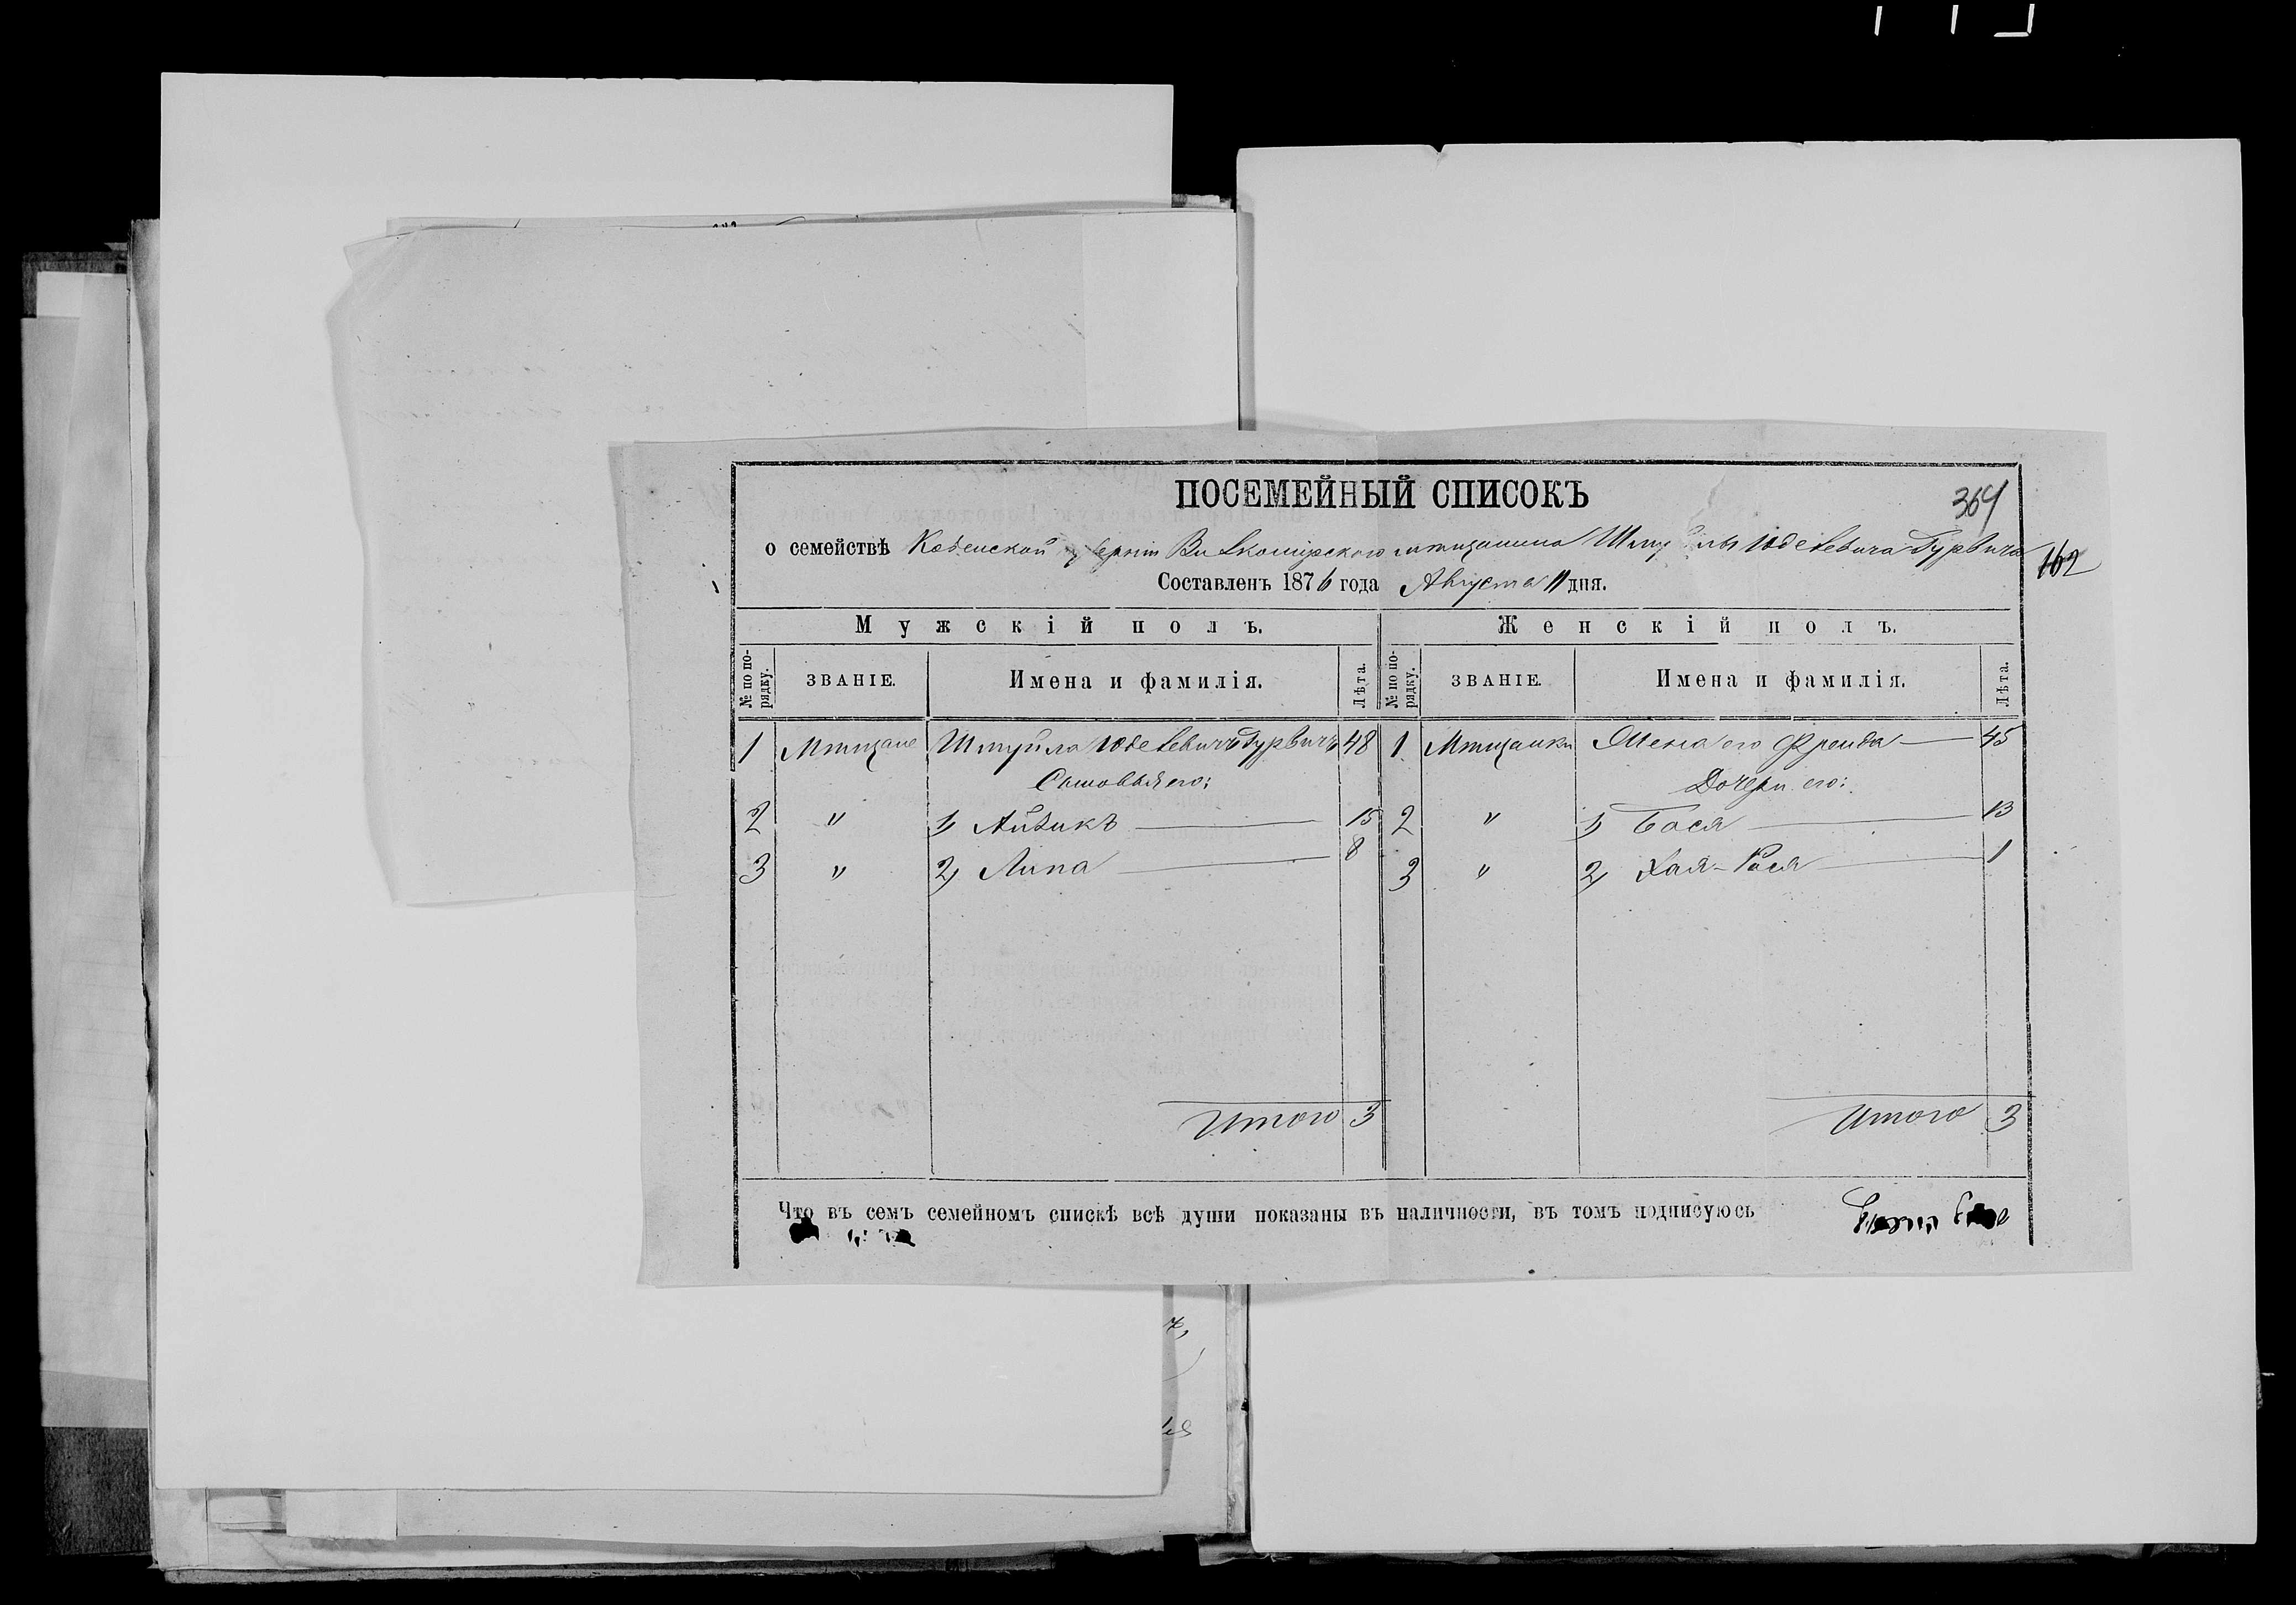 ПОСЕМЕЙНЫЙ СПИСОКЪ
364
о семействѣ Ковенской губерніи Вилкомірского мѣщанина Шмуйлы Юделевича Гурвича
162
Составленъ 1876 года Августа 11 дня.
Мужскій полъ. Женскій полъ.
№ по порядку. ЗВАНІЕ. Имена и фамилія. Лѣта. № по порядку. ЗВАНІЕ. Имена и фамилія. Лѣта.
1 Мѣщане Шмуйла Юделевичъ Гурвичъ 48 1. Мѣщанки Жена его Фрейда — 45
Сыновья его: Дочери его:
2 " 1, Айзикъ — 15 2 " 1, Бася — 13
3 " 2, Липа — 8 3 " 2, Хая-Рася — 1
Итого 3 Итого 3
Что въ семъ семейномъ спискѣ всѣ души показаны въ наличности, въ томъ подписуюсь